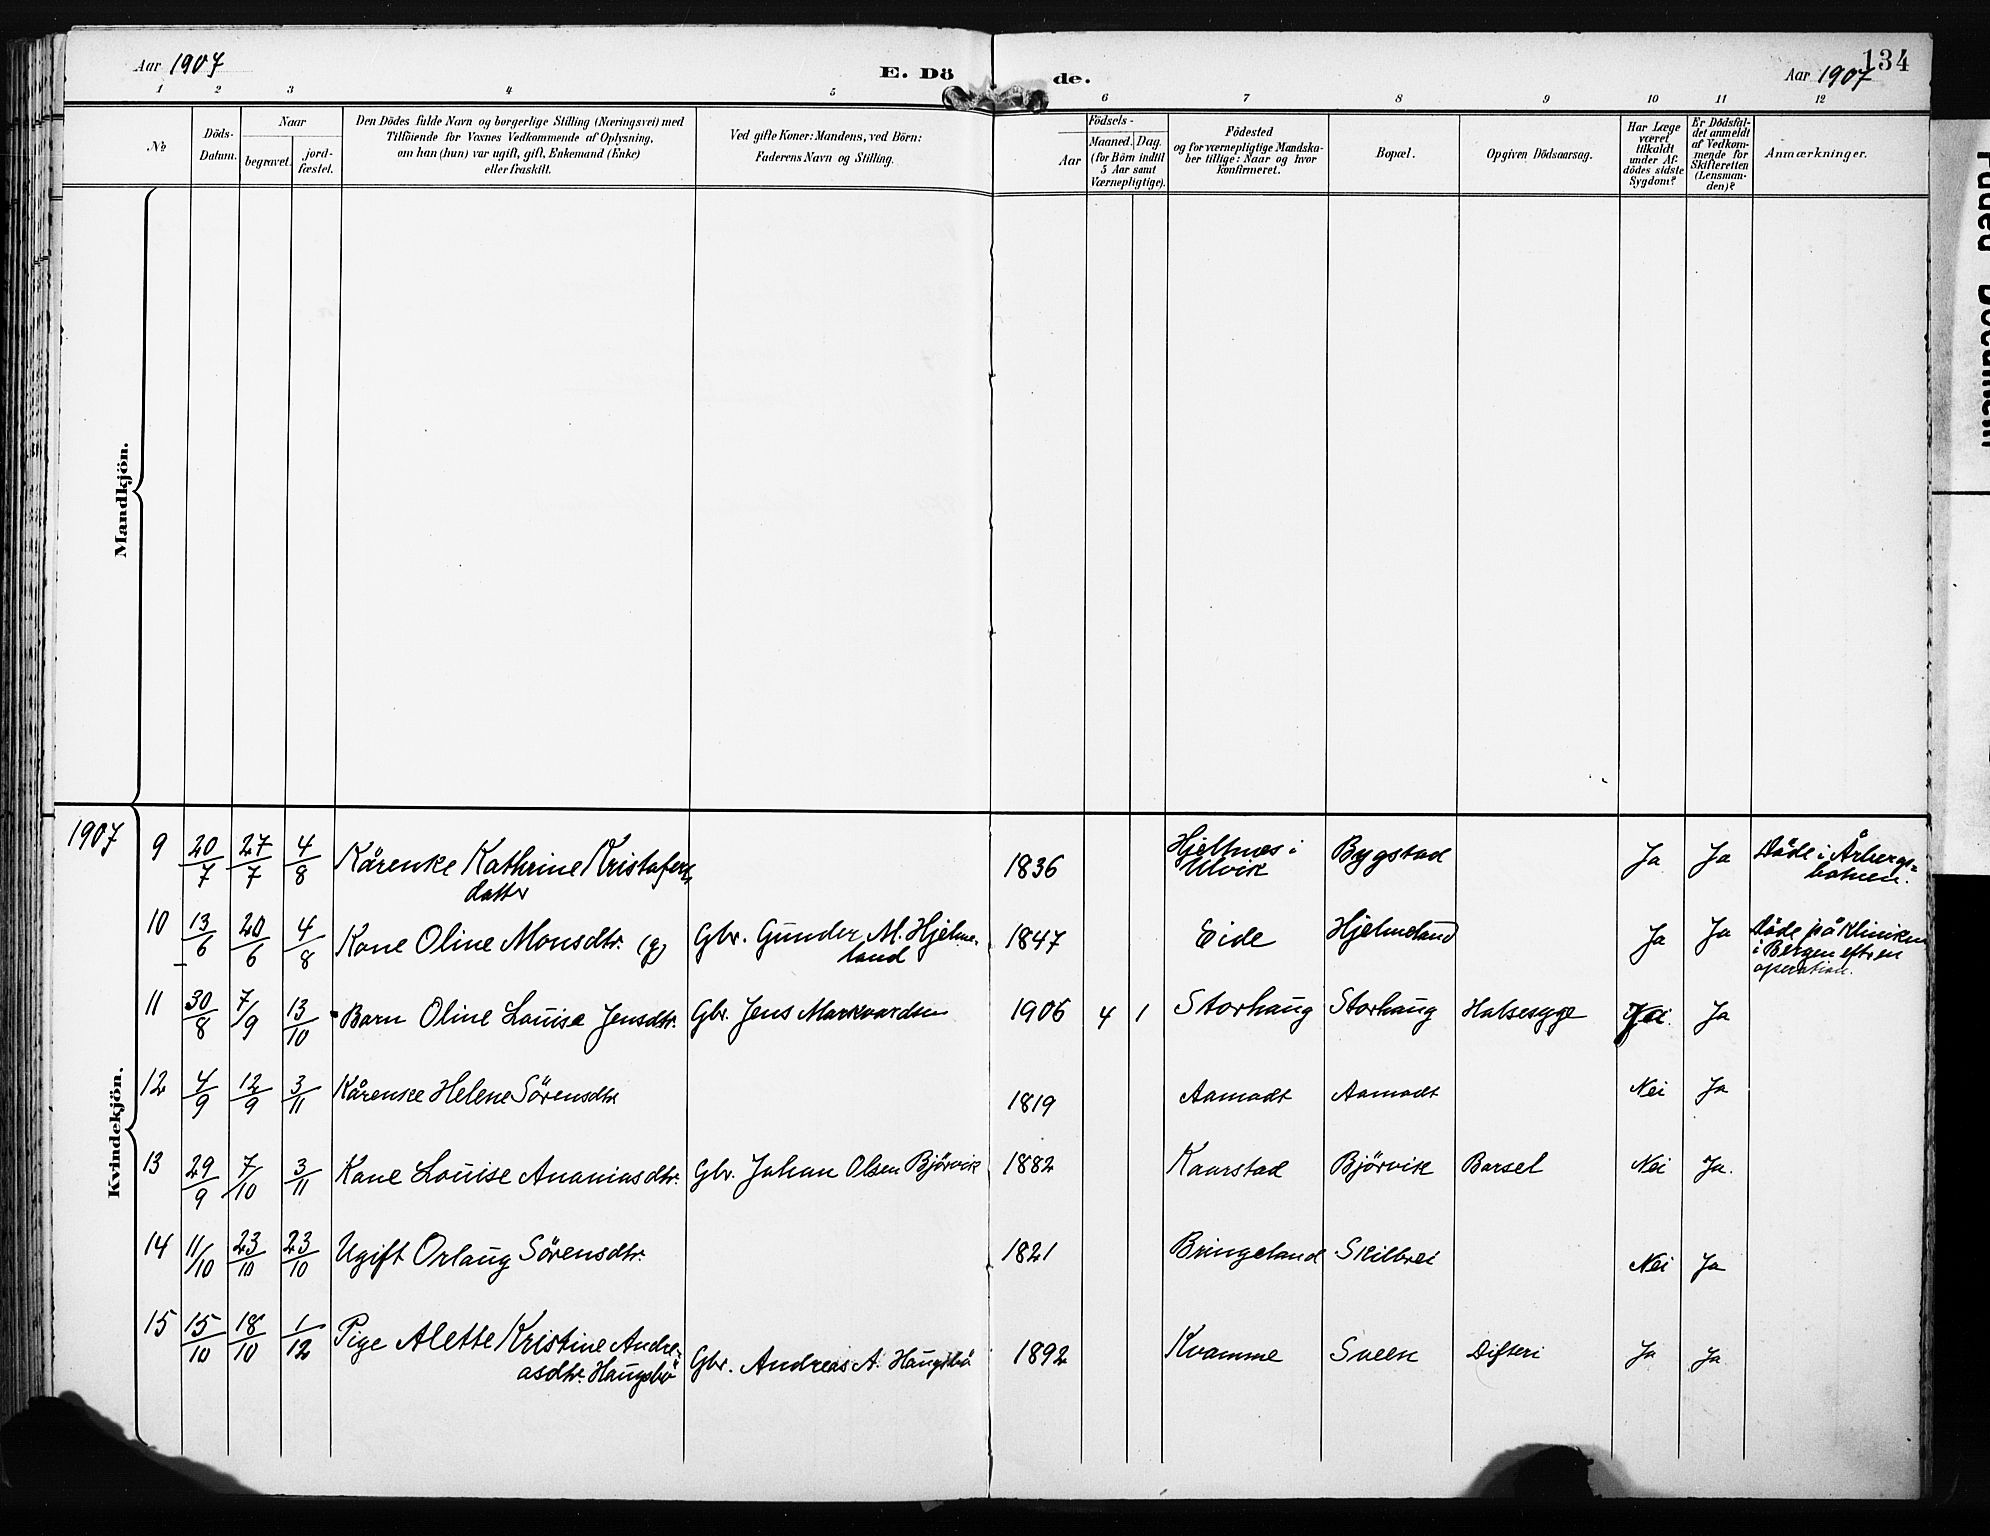 Aar 1907
E. Dö
de.
Aar 1907
134
1 2 3 4 5 6 7 8 9 10 11 12
№
Döds-
Datum.
Naar
begravet.
jord-
fæstet.
Den Dödes fulde Navn og borgerlige Stilling (Næringsvei) med
Tilföiende for Voxnes Vedkommende af Oplysning,
om han (hun) var ugift, gift, Enkemand (Enke)
eller fraskilt.
Ved gifte Koner: Mandens, ved Börn:
Faderens Navn og Stilling.
Födsels-
Aar
Maaned. Dag.
(for Börn indtil
5 Aar samt
Værnepligtige).
Födested
og for værnepligtige Mandska-
ber tillige: Naar og hvor
konfirmeret.
Bopæl.
Opgiven Dödsaarsag.
Har Læge
været
tilkaldt
under Af-
dödes sidste
Sygdom?
Er Dödsfal-
det anmeldt
af Vedkom-
mende for
Skifteretten
(Lensman-
den)?
Anmærkninger.
Mandkjön.
Kvindekjön.
1907
9 20/7 27/7 4/8 Kårenke Kathrine Kristafers
datter
1836 Hjeltnes i
Ulvik
Bygstad Ja Ja Döde i Årbergs-
botnen.
10 13/6 20/6 4/8 Kone Oline Monsdtr. (g) Gbr. Gunder M. Hjelme-
land
1847 Eide Hjelmeland Ja Ja Döde på Kliniken
i Bergen eft. en
operation.
11 30/8 7/9 13/10 Barn Oline Louise Jensdtr. Gbr. Jens Markvardsen 1906 4 1 Storhaug Storhaug Halsesyge Ja
12 4/9 12/9 3/11 Kårenke Helene Sörensdtr 1819 Aamodt Aamodt Nei Ja
13 29/9 7/10 3/11 Kone Louise Ananiasdtr. Gbr. Johan Olsen Björvik 1882 Kaarstad Björvik Barsel Nei Ja.
14 11/10 23/10 23/10 Ugift Orlaug Sörensdtr. 1821 Bringeland Skilbrei Nei Ja
15 15/10 18/10 1/12 Pige Alette Kristine Andre-
asdtr. Haugsbö
Gbr. Andreas A. Haugsbö 1892 Kvamme Sveen Difteri Ja Ja